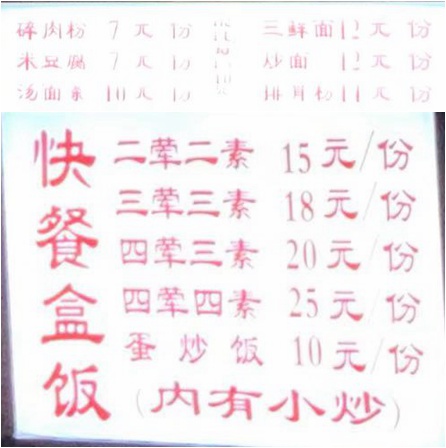 碎肉粉 7元 份 三鲜面 12元 份
米豆腐 7元 份 炒面 12元 份
汤面 10元 份 排骨粉 11元 份
快餐盒饭
二荤二素 15元/份
三荤三素 18元/份
四荤三素 20元/份
四荤四素 25元/份
蛋炒饭 10元/份
(内有小炒)